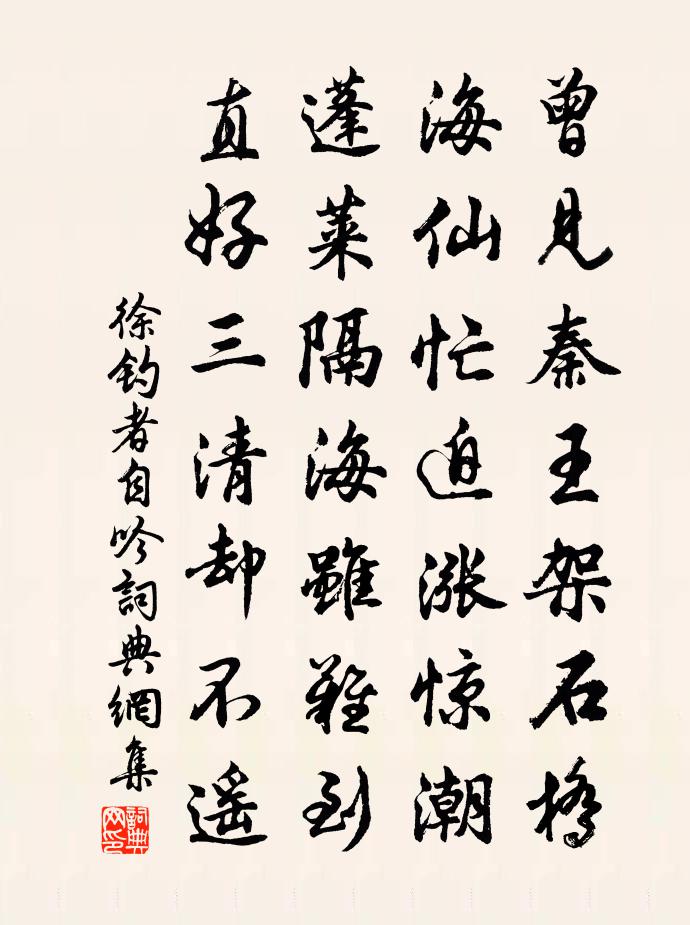 曾見秦王架石橋
海仙忙迫漲惊潮
蓬萊隔海雖難到
直好三清却不遥
徐钓者自吟詞典網集
詞典網印